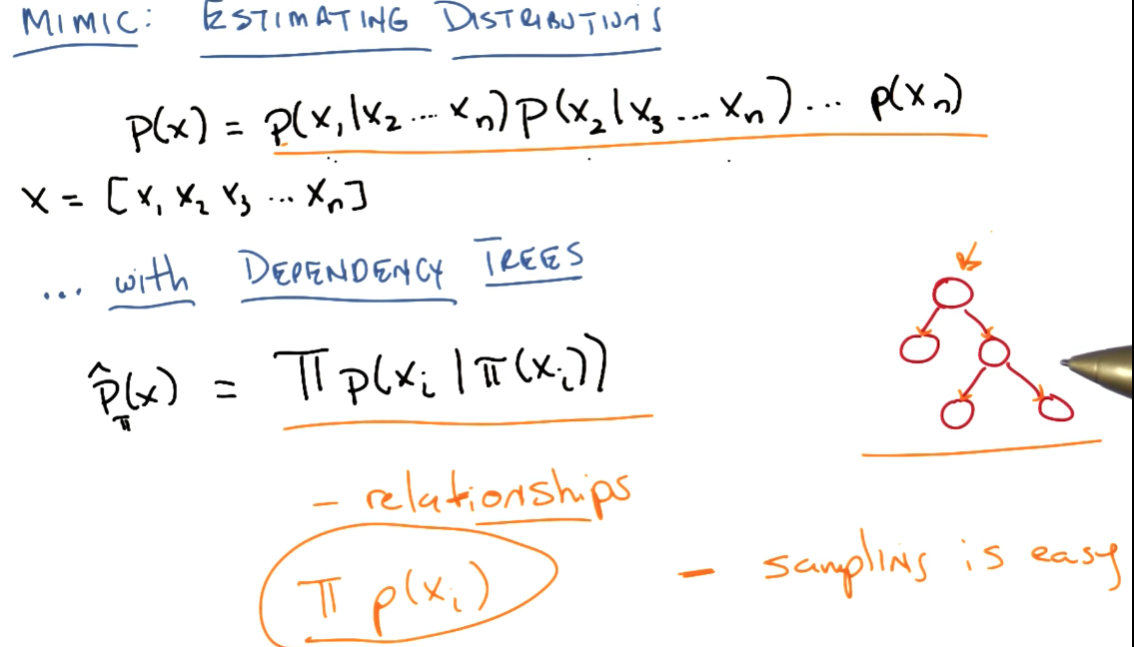 MIMIC: ESTIMATING DISTRIBUTIONS
p(x) = p(x₁|x₂ ... xₙ) p(x₂|x₃ ... xₙ) ... p(xₙ)
x = [x₁ x₂ x₃ ... xₙ]
... with DEPENDENCY TREES
p̂_π(x) = Π p(xᵢ | π(xᵢ))
- relationships
Π p(xᵢ)
- sampling is easy